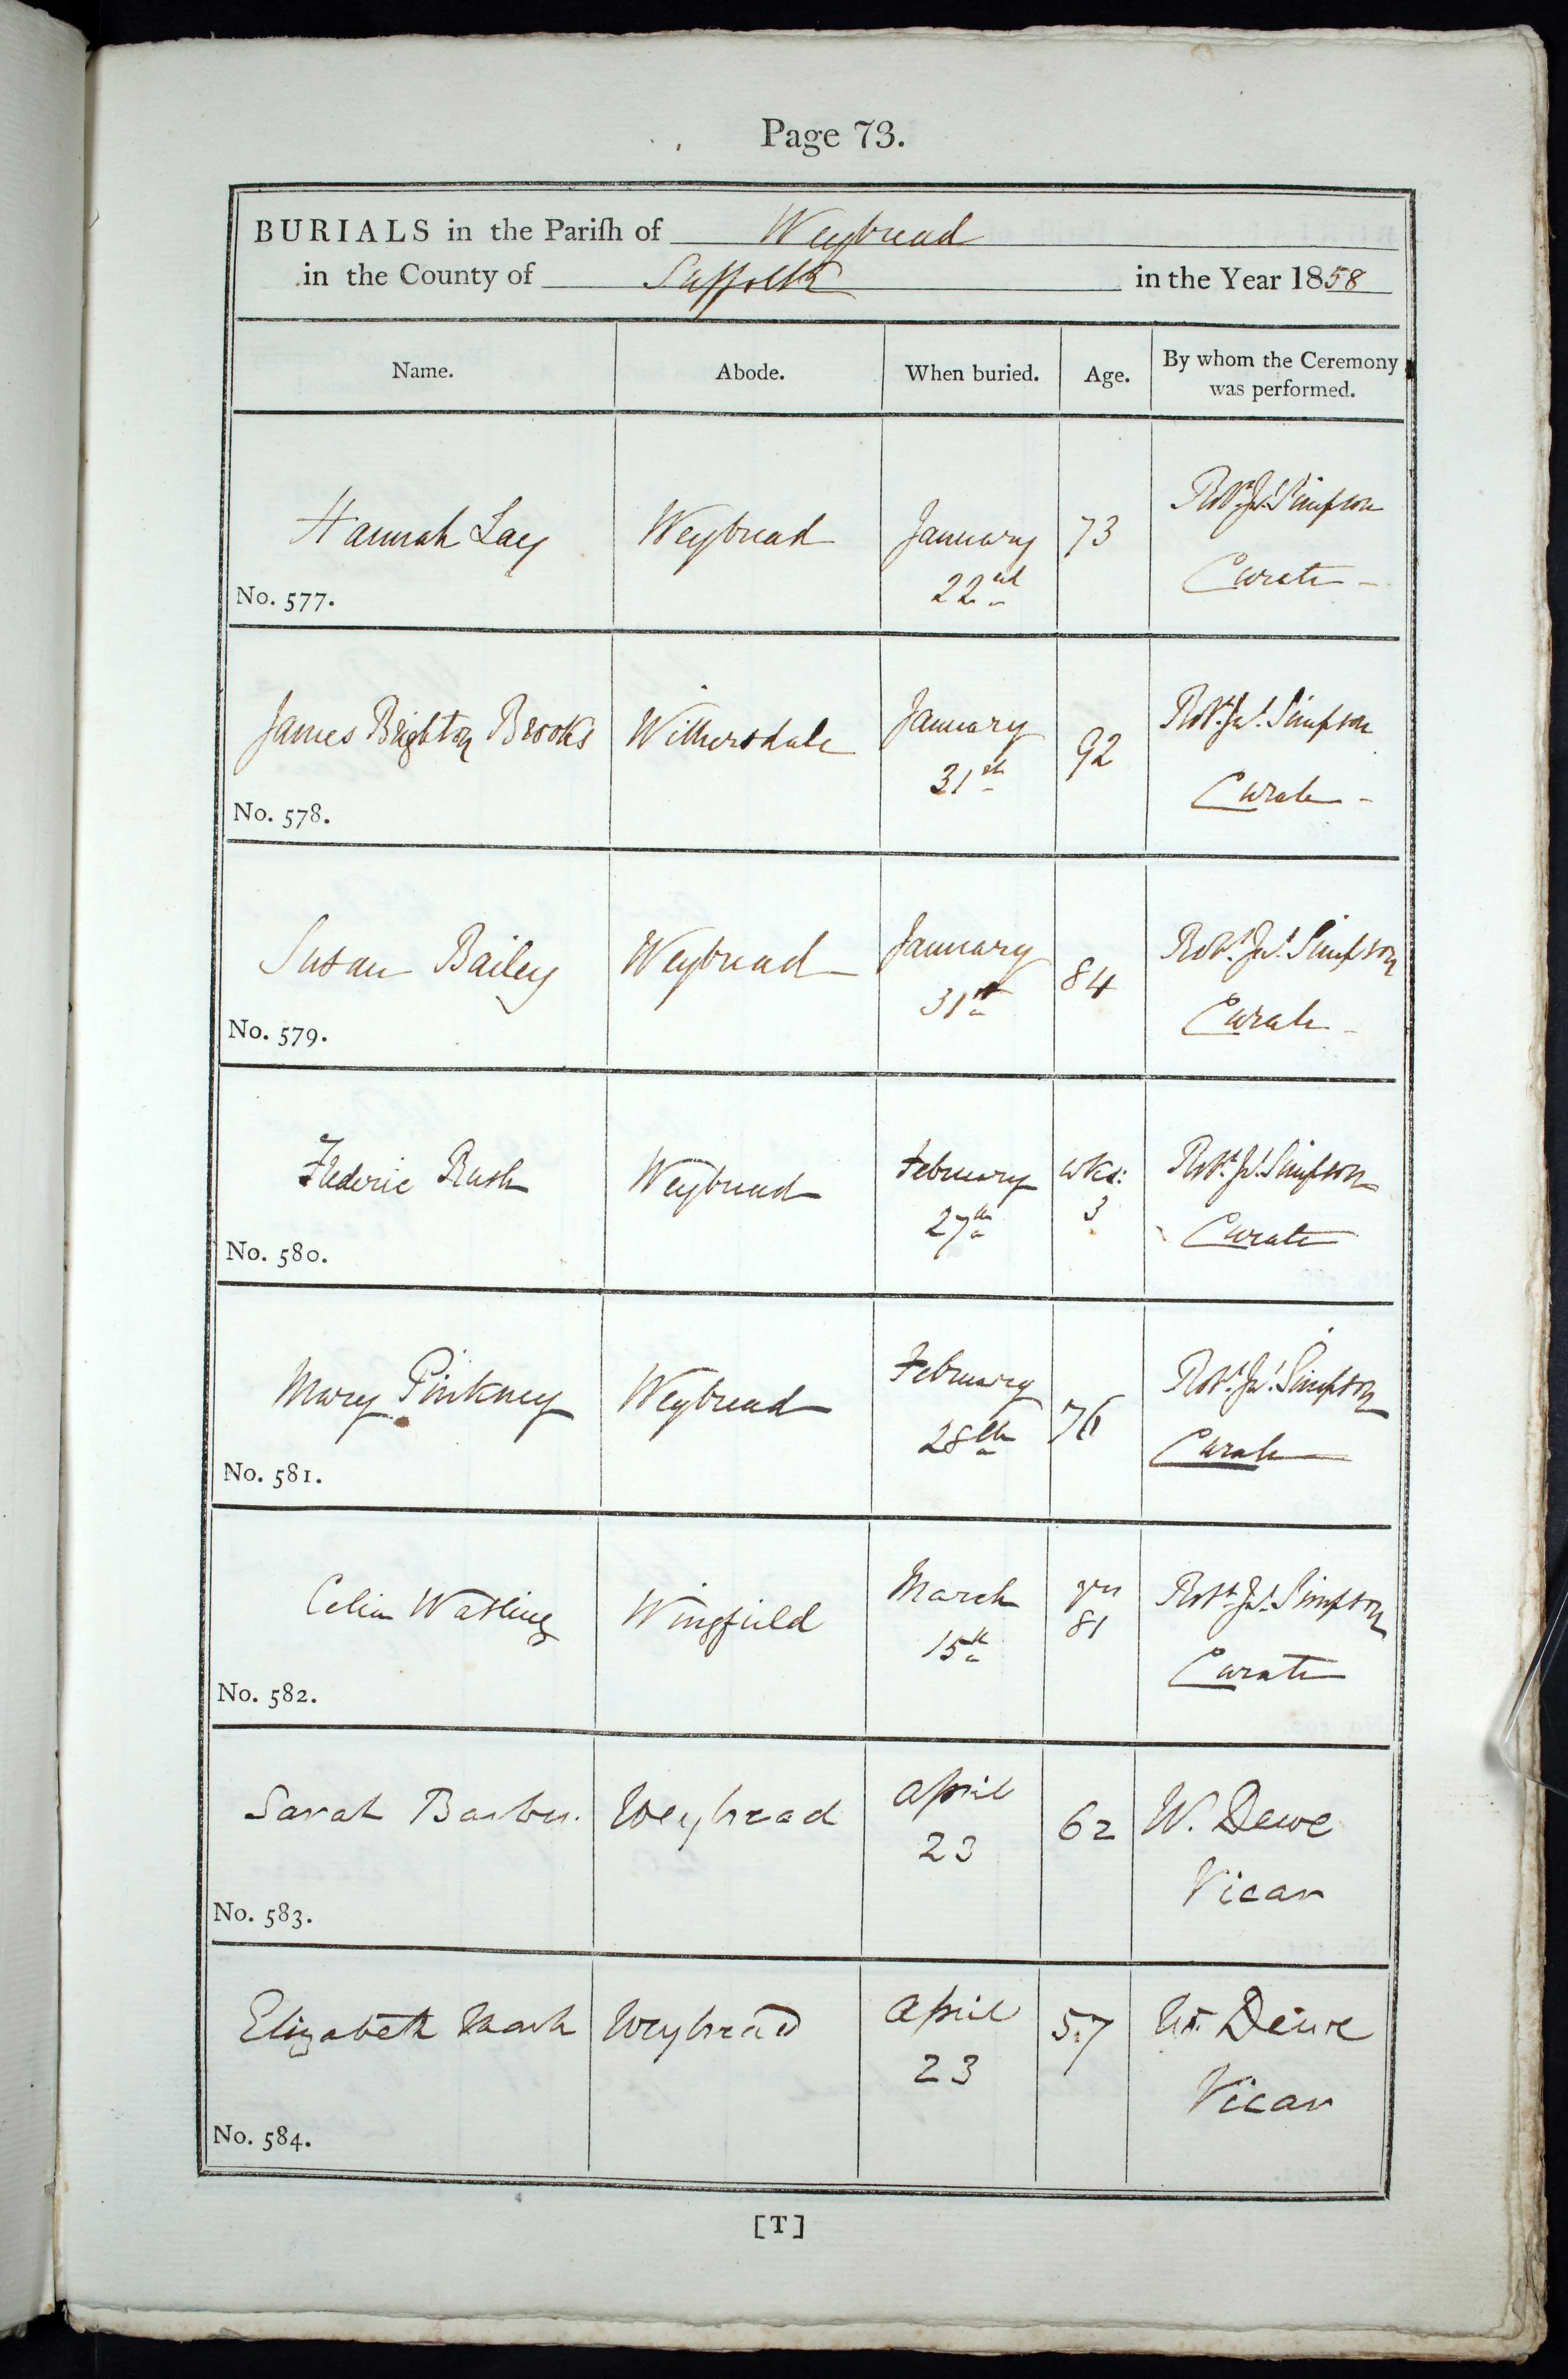 Page 73.
BURIALS in the Pariſh of Weybread
in the County of Suffolk in the Year 1858
Name. Abode. When buried. Age. By whom the Ceremony was performed.
Hannah Lay Weybread January 22nd 73 Robt. Jas. Simpson Curate
No. 577.
James Brighton Brooks Withersdale January 31st 92 Robt. Jas. Simpson Curate
No. 578.
Susan Bailey Weybread January 31st 84 Robt. Jas. Simpson Curate
No. 579.
Frederic Rush Weybread February 27th wks: 3 Robt. Jas. Simpson Curate
No. 580.
Mary Pinkney Weybread February 28th 76 Robt. Jas. Simpson Curate
No. 581.
Celia Watling Wingfield March 15th yrs 81 Robt. Jas. Simpson Curate
No. 582.
Sarah Barber. Weybread April 23 62 W. Dewe Vicar
No. 583.
Elizabeth Weybread April 23 57 Wm. Dewe Vicar
No. 584.
[T]